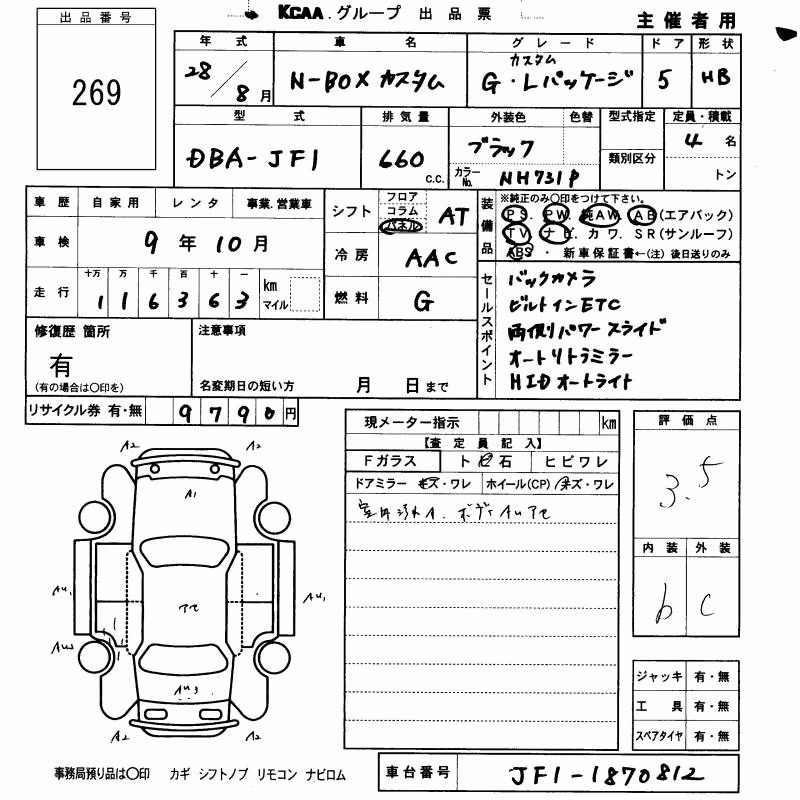 KCAA グループ 出品票
主催者用
出品番号
269
年式 車名 グレード ドア 形状
28/8月 N-BOXカスタム カスタム G・Lパッケージ 5 HB
型式 排気量 外装色 色替 型式指定 定員・積載
DBA-JF1 660 c.c. ブラック 類別区分 4名
カラーNo. NH731P トン
車歴 自家用 レンタ 事業.営業車
車検 9年10月
走行 十万 万 千 百 十 一
116363 km マイル
シフト フロア コラム パネル AT
冷房 AAC
燃料 G
装備品 ※純正のみ○印をつけて下さい。
PS. PW. 純AW. AB(エアバック)
TV. ナビ. カワ. SR(サンルーフ)
ABS ・ 新車保証書←(注) 後日送りのみ
セールスポイント
バックカメラ
ビルトインETC
両側パワースライド
オートリトラミラー
HIDオートライト
修復歴 箇所
有
(有の場合は○印を)
注意事項
名変期日の短い方 月 日まで
リサイクル券 有・無 9790円
現メーター指示 km
【査定員記入】
Fガラス ト ビ 石 ヒビワレ
ドアミラー キズ・ワレ ホイール(CP) キズ・ワレ
評価点
3.5
内装 外装
b C
A2 A2
A1
AU1 AU1
AW
AU3
A2 A2
ジャッキ 有・無
工具 有・無
スペアタイヤ 有・無
事務局預り品は○印 カギ シフトノブ リモコン ナビロム
車台番号 JF1-1870812